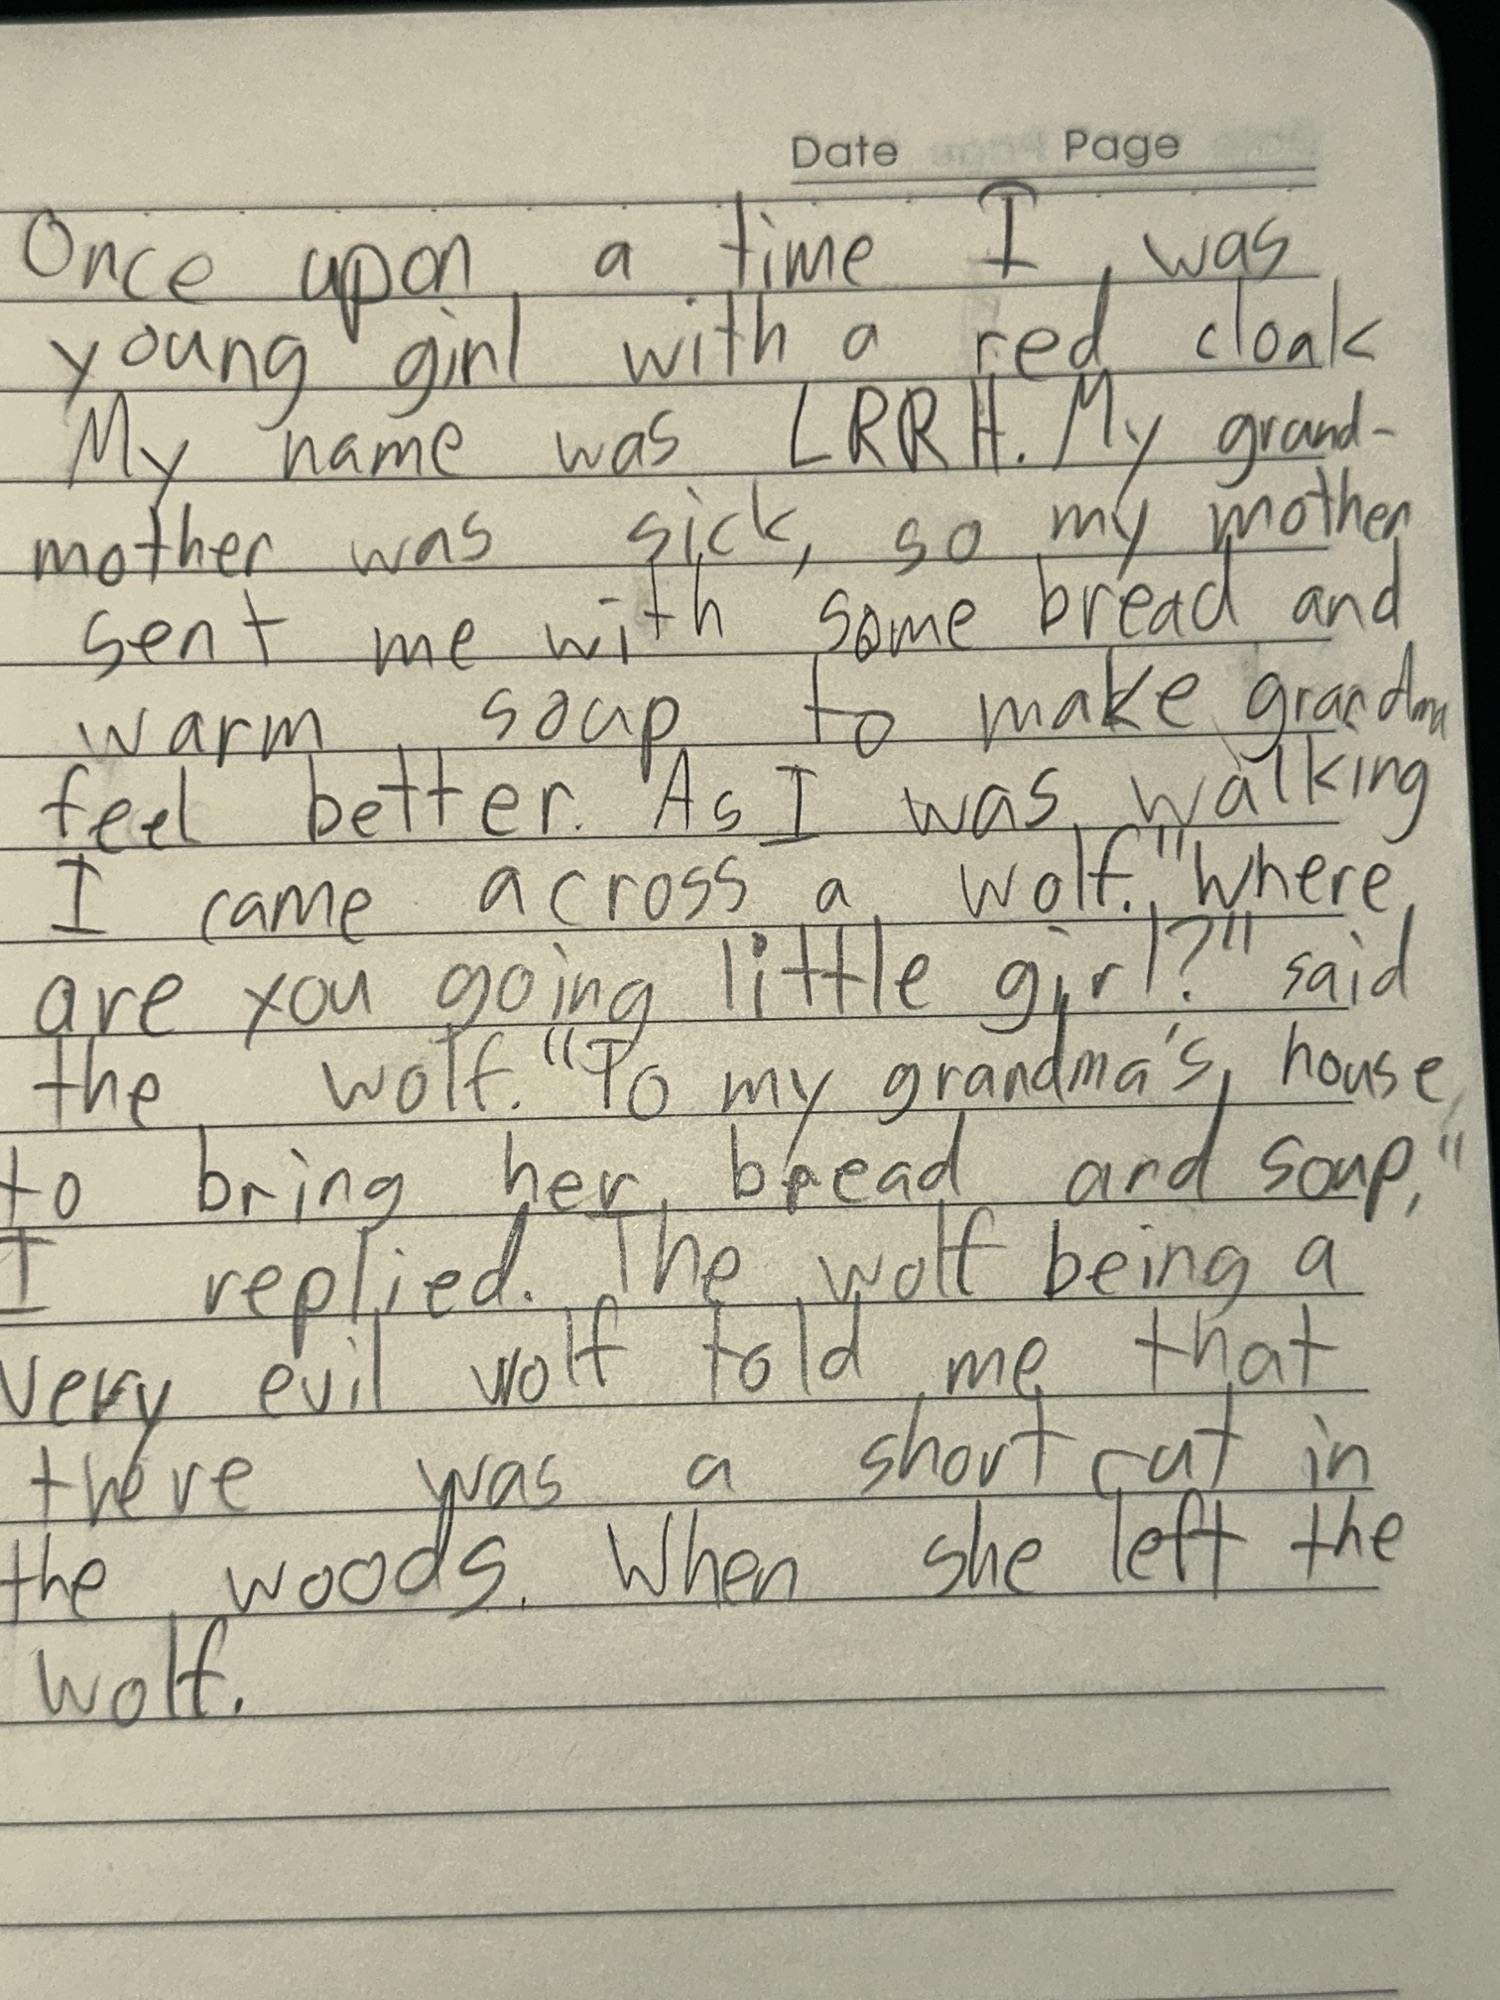 Date Page
Once upon a time I was
young girl with a red cloak
My name was LRRH. My grand-
mother was sick, so my mother
sent me with some bread and
warm soup to make grandma
feel better. As I was walking
I came across a wolf. "Where
are you going little girl?" said
the wolf. "To my grandma's house
to bring her bread and soup,"
I replied. The wolf being a
very evil wolf told me that
there was a short cut in
the woods. When she left the
wolf.